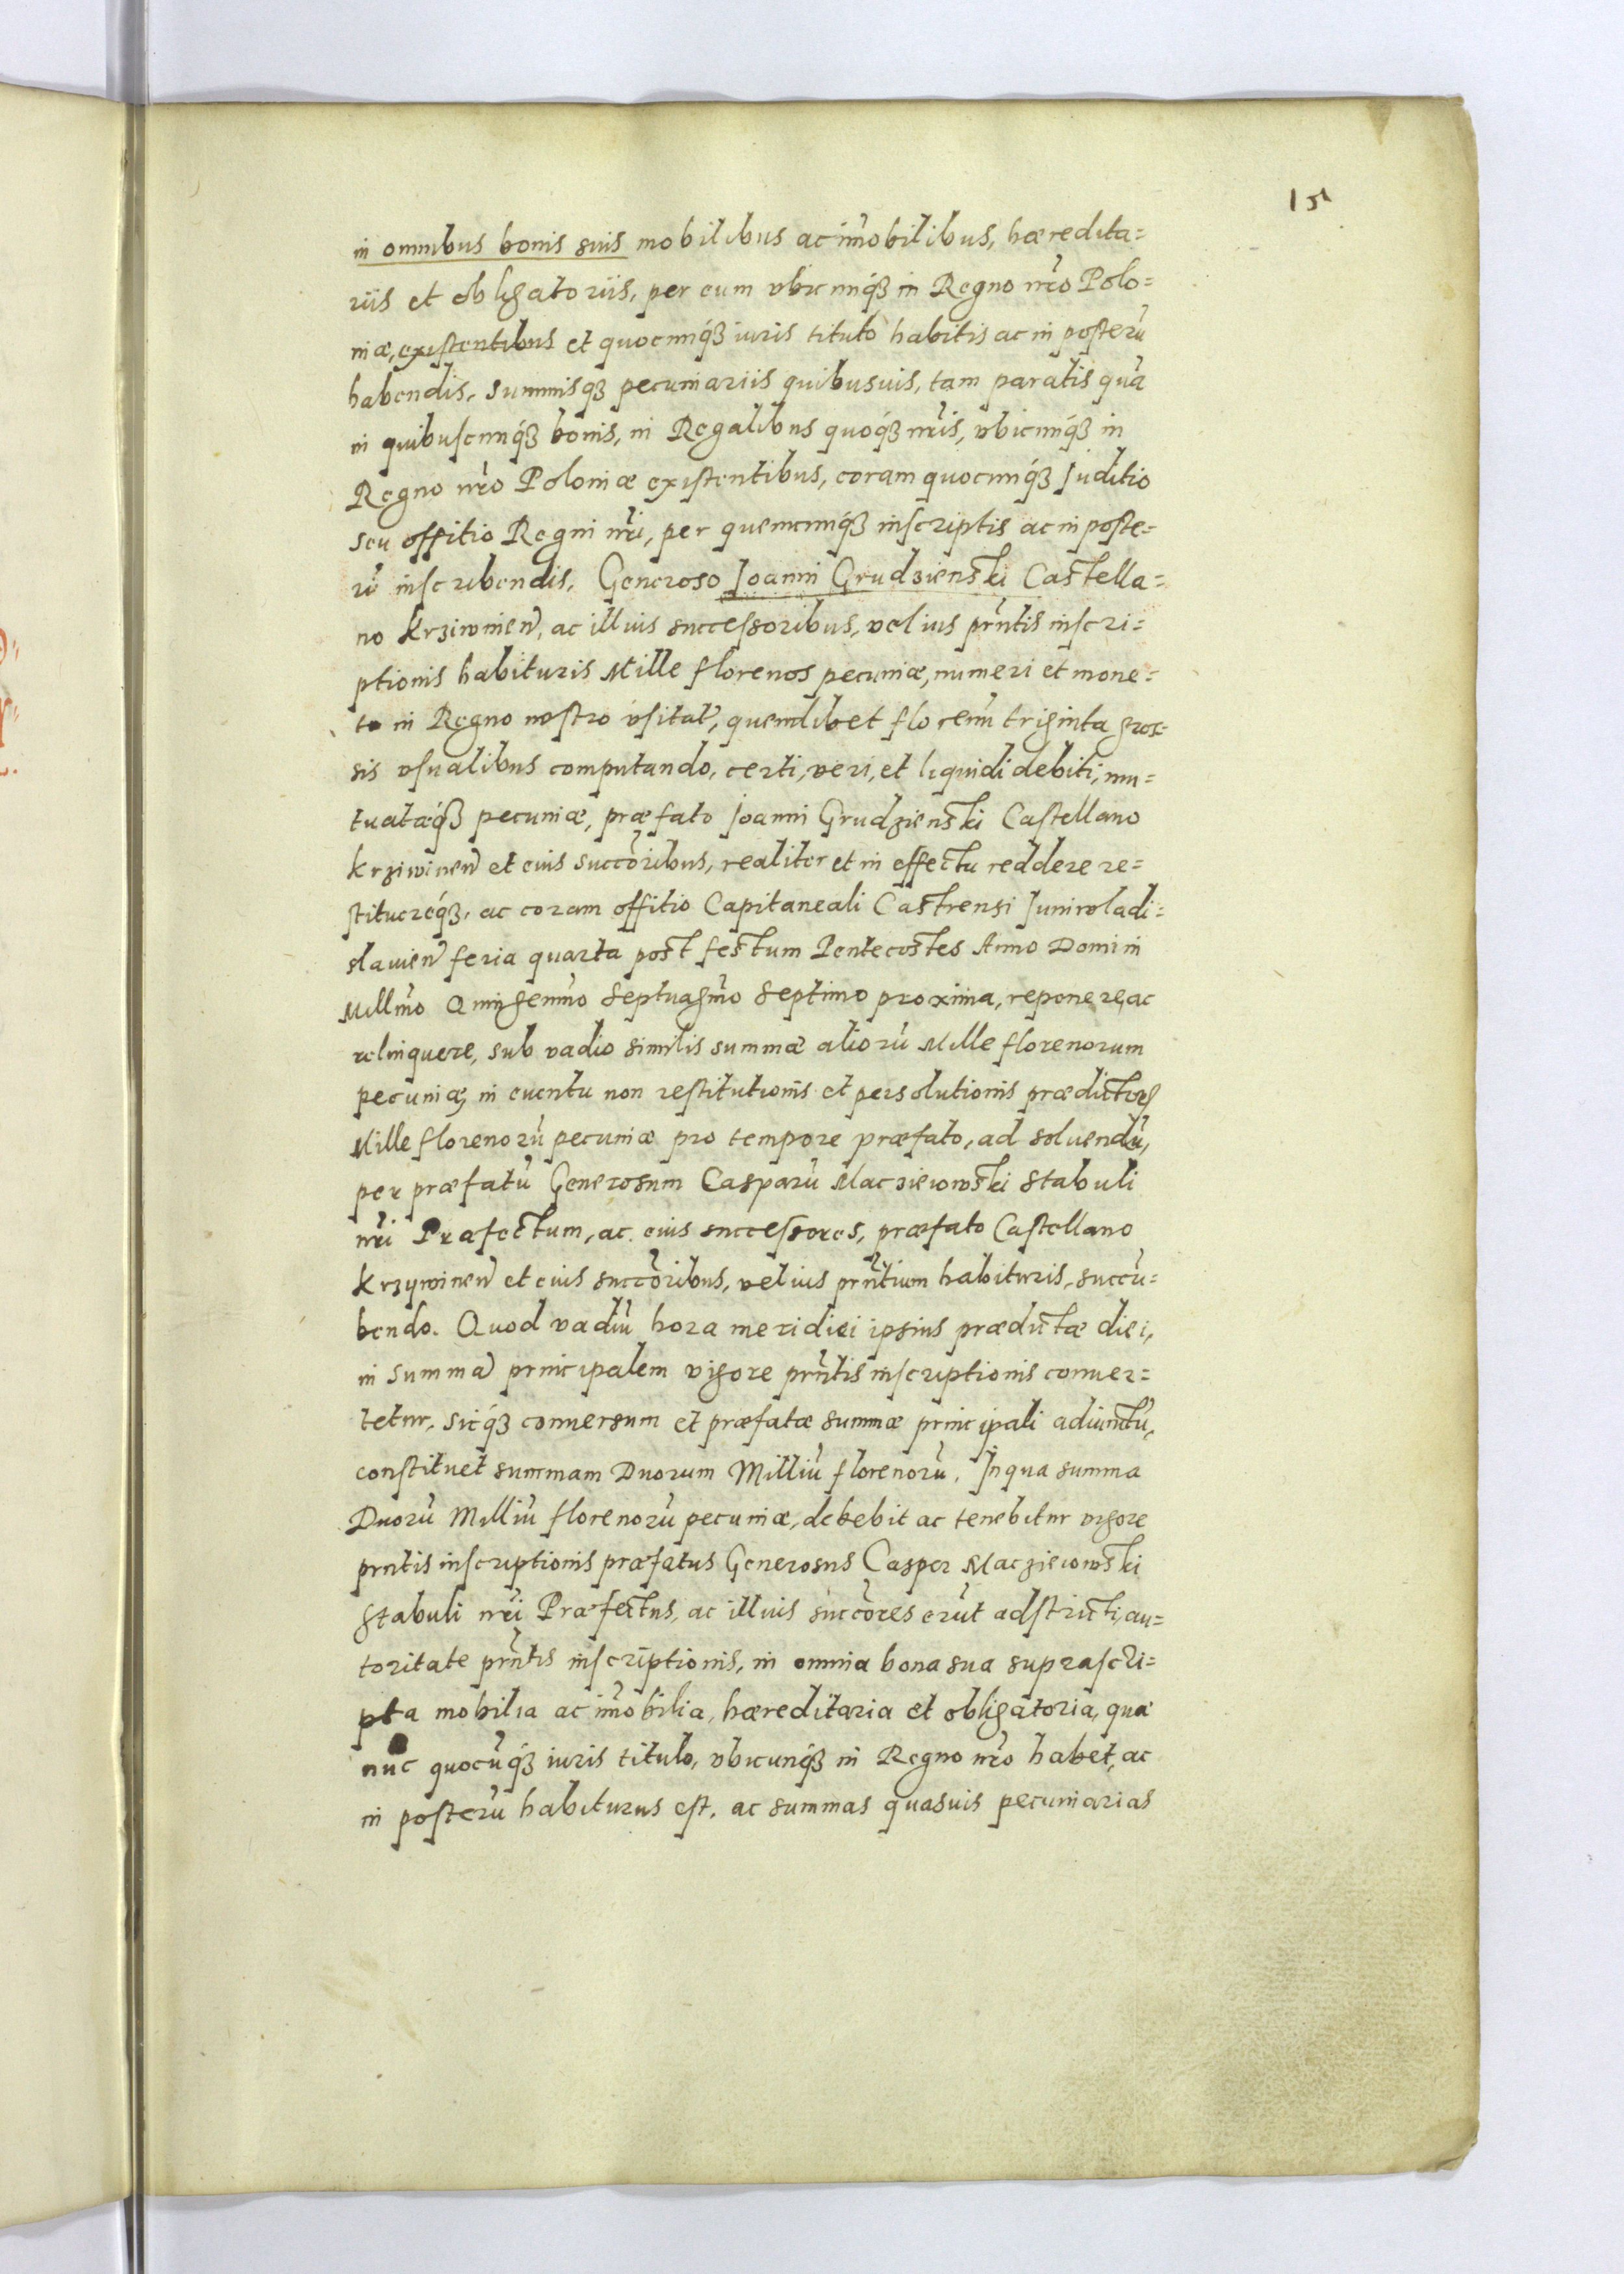 15
in omnibus bonis suis mobilibus ac im̃obilibus, hæredita=
riis et obligatoriis, per eum vbicunq́ꝫ in Regno nr̃o Polo=
niæ, existentibus et quocunq́ꝫ iuris titulo habitis ac in posterũ
habendis. Summisqꝫ pecuniariis quibusuis, tam paratis quã
in quibuscunq́ꝫ bonis, in Regalibus quoq́ꝫ nr̃is, vbicunq́ꝫ in
Regno nr̃o Poloniæ existentibus, coram quocunq́ꝫ Juditio
seu offitio Regni nr̃i, per quemcunq́ꝫ inscriptis ac in poste=
rũ inscribendis. Generoso Joanni Grudzienski Castella=
no Krziwinen̄, ac illius successoribus, vel ius pñtis inscri=
ptionis habituris Mille florenos pecuniæ, numeri et mone=
tæ in Regno nostro vsitat̄, quemlibet florenũ triginta gros=
sis vsualibus computando, certi, veri, et liquidi debiti, mu=
tuatæq́ꝫ pecuniæ, præfato Joanni Grudzienski Castellano
Krziwinen̄ et eius succõribus, realiter et in effectu reddere re=
stituereq́ꝫ, ac coram offitio Capitaneali Castrensi Juniwladi=
slauien̄ feria quarta post festum Pentecostes Anno Domini
Millm̃o Quingenm̃o Septuagm̃o Septimo proxima, reponere, ac
relinquere, sub vadio similis summæ aliorũ Mille florenorum
pecuniæ, in euentu non restitutionis et persolutionis prædictorꝝ
Mille florenorũ pecuniæ pro tempore præfato, ad soluendũ,
per præfatũ Generosum Casparũ Maczieiowski Stabuli
nr̃i Præfectum, ac eius successores, præfato Castellano
Krzywinen̄ et eius succõribus, vel ius pñtium habituris, succũ=
bendo. Quod vadiũ hora meridiei ipsius prædictæ diei,
in summã principalem vigore pñtis inscriptionis conuer=
tetur. Sicq́ꝫ conuersum et præfatæ summæ principali adiunctũ,
constituet summam Duorum Milliũ florenorũ. In qua summa
Duorũ Milliũ florenorũ pecuniæ, debebit ac tenebitur vigore
pñtis inscriptionis præfatus Generosus Casper Maczieiowski
Stabuli nr̃i Præfectus, ac illius succõres erũt adstricti, au=
toritate pñtis inscriptionis, in omnia bona sua suprascri=
pta mobilia ac im̃obilia, hæreditaria et obligatoria, quæ
nũc quocũq́ꝫ iuris titulo, vbicunq́ꝫ in Regno nr̃o habet, ac
in posterũ habiturus est. ac summas quasuis pecuniarias